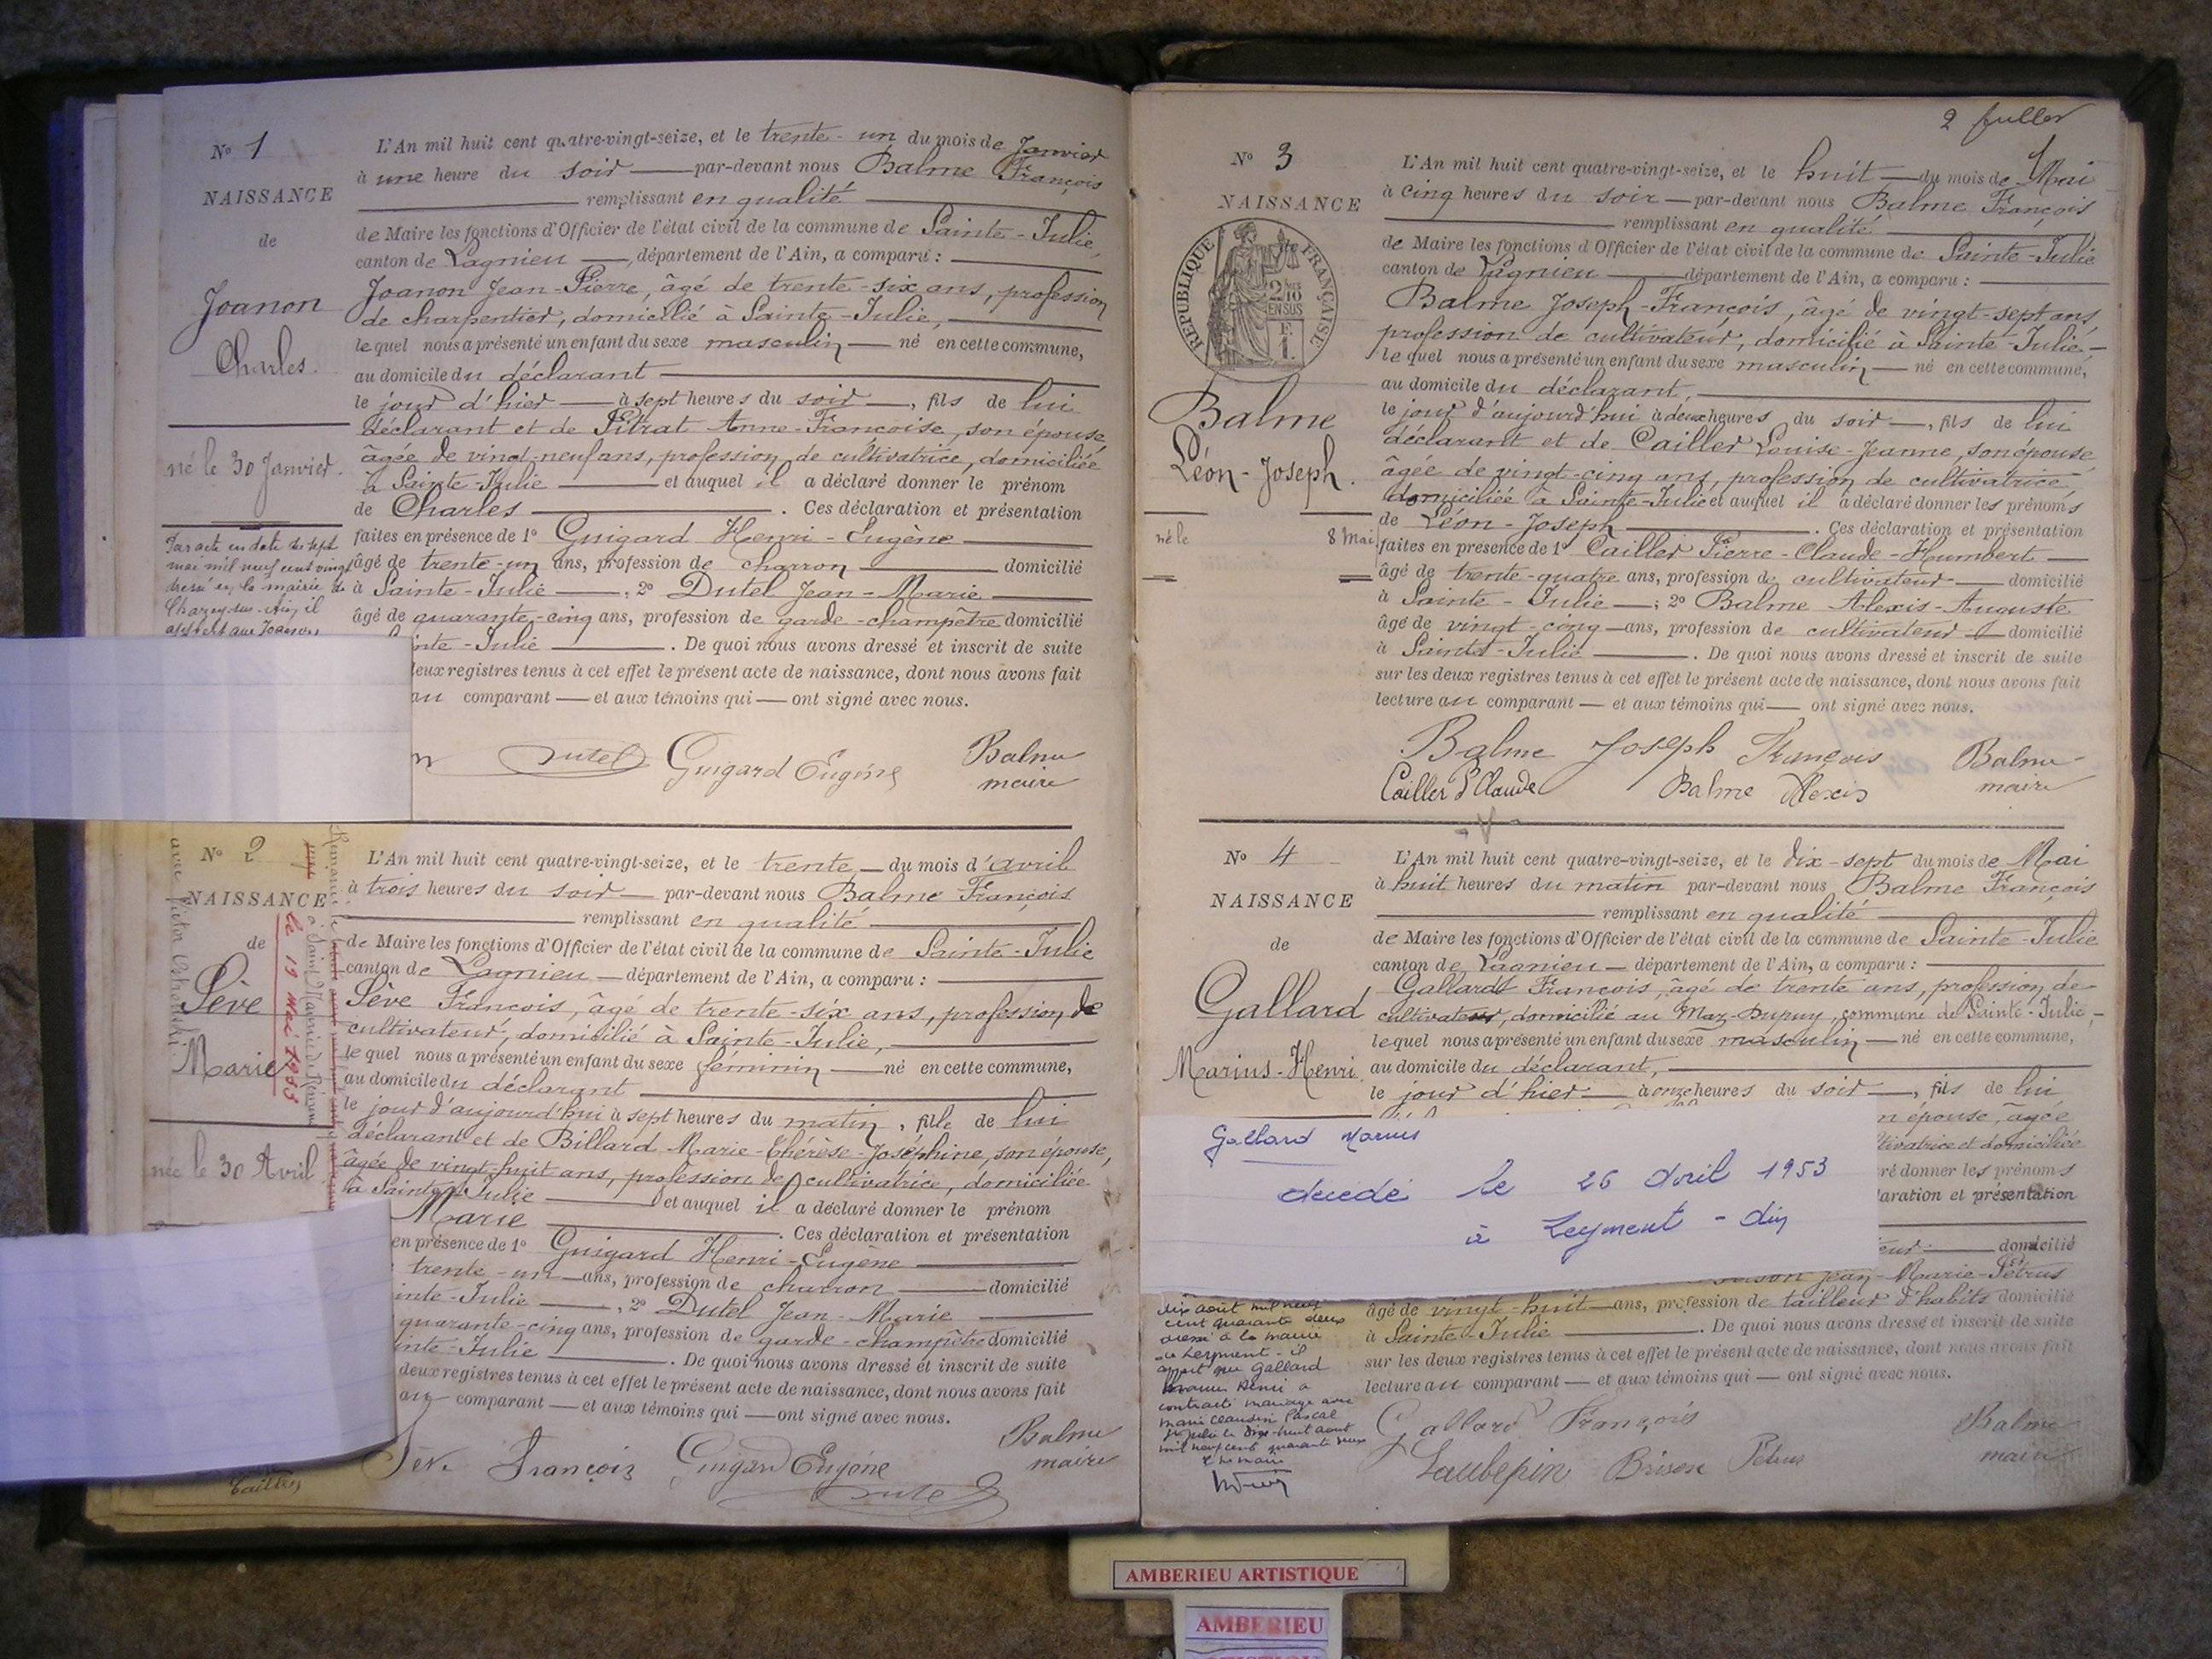 N° 1
NAISSANCE
de
Joanon
Charles.
né le 30 Janvier.
Par acte en date du sept
mai mil neuf cent vingt
dressé en la mairie de
Chazey-sur-Ain, il
appert que Joanon
L'An mil huit cent quatre-vingt-seize, et le trente-un du mois de Janvier
à une heure du soir — par-devant nous Balme François
remplissant en qualité
de Maire les fonctions d'Officier de l'état civil de la commune de Sainte-Julie,
canton de Lagnieu —, département de l'Ain, a comparu :
Joanon Jean-Pierre, âgé de trente-six ans, profession
de charpentier, domicilié à Sainte-Julie,
lequel nous a présenté un enfant du sexe masculin — né en cette commune,
au domicile du déclarant
le jour d'hier — à sept heures du soir —, fils de lui
déclarant et de Pitrat Anne-Françoise, son épouse,
âgée de vingt-neuf ans, profession de cultivatrice, domiciliée
à Sainte-Julie — et auquel il a déclaré donner le prénom
de Charles — . Ces déclaration et présentation
faites en présence de 1° Guigard Henri-Eugène
âgé de trente-un ans, profession de charron — domicilié
à Sainte-Julie — ; 2° Dutel Jean-Marie
âgé de quarante-cinq ans, profession de garde-champêtre domicilié
inte-Julie — . De quoi nous avons dressé et inscrit de suite
deux registres tenus à cet effet le présent acte de naissance, dont nous avons fait
au comparant — et aux témoins qui — ont signé avec nous.
n Dutel Guigard Eugène Balme
maire
N° 2
NAISSANCE
de
Sève
Marie
née le 30 Avril
le 19 Mai 1953
L'An mil huit cent quatre-vingt-seize, et le trente — du mois d'avril
à trois heures du soir — par-devant nous Balme François
remplissant en qualité
de Maire les fonctions d'Officier de l'état civil de la commune de Sainte-Julie
canton de Lagnieu — département de l'Ain, a comparu :
Sève François, âgé de trente-six ans, profession de
cultivateur, domicilié à Sainte-Julie,
lequel nous a présenté un enfant du sexe féminin — né en cette commune,
au domicile du déclarant
le jour d'aujourd'hui à sept heures du matin, fille de lui
déclarant et de Billard Marie-Thérèse-Joséphine, son épouse,
âgée de vingt-huit ans, profession de cultivatrice, domiciliée
à Sainte-Julie — et auquel il a déclaré donner le prénom
Marie — . Ces déclaration et présentation
en présence de 1° Guigard Henri-Eugène
trente-un — ans, profession de charron — domicilié
inte-Julie — , 2° Dutel Jean-Marie
quarante-cinq ans, profession de garde-champêtre domicilié
inte-Julie — . De quoi nous avons dressé et inscrit de suite
deux registres tenus à cet effet le présent acte de naissance, dont nous avons fait
au comparant — et aux témoins qui — ont signé avec nous.
Sève François Guigard Eugène Balme
maire
Dutel
2
N° 3
NAISSANCE
RÉPUBLIQUE FRANÇAISE
2/10
EN SUS
Balme
Léon-Joseph.
né le 8 Mai
L'An mil huit cent quatre-vingt-seize, et le huit — du mois de Mai
à cinq heures du soir — par-devant nous Balme François
remplissant en qualité
de Maire les fonctions d'Officier de l'état civil de la commune de Sainte-Julie
canton de Lagnieu — département de l'Ain, a comparu :
Balme Joseph-François, âgé de vingt-sept ans
profession de cultivateur, domicilié à Sainte-Julie,
lequel nous a présenté un enfant du sexe masculin — né en cette commune,
au domicile du déclarant,
le jour d'aujourd'hui à deux heures du soir —, fils de lui
déclarant et de Cailler Louise-Jeanne, son épouse
âgée de vingt-cinq ans, profession de cultivatrice
domiciliée à Sainte-Julie et auquel il a déclaré donner les prénoms
de Léon-Joseph — . Ces déclaration et présentation
faites en présence de 1° Cailler Pierre-Claude-Humbert
âgé de trente-quatre ans, profession de cultivateur — domicilié
à Sainte-Julie — ; 2° Balme Alexis-Auguste
âgé de vingt-cinq — ans, profession de cultivateur — domicilié
à Sainte-Julie — . De quoi nous avons dressé et inscrit de suite
sur les deux registres tenus à cet effet le présent acte de naissance, dont nous avons fait
lecture au comparant — et aux témoins qui — ont signé avec nous.
Balme Joseph François Balme
Cailler P Claude Balme Alexis maire
N° 4
NAISSANCE
de
Gallard
Marius-Henri
L'An mil huit cent quatre-vingt-seize, et le dix-sept du mois de Mai
à huit heures du matin par-devant nous Balme François
remplissant en qualité
de Maire les fonctions d'Officier de l'état civil de la commune de Sainte-Julie
canton de Lagnieu — département de l'Ain, a comparu :
Gallard François, âgé de trente ans, profession de
cultivateur, domicilié au Maz-Dupuy, commune de Sainte-Julie,
lequel nous a présenté un enfant du sexe masculin — né en cette commune,
au domicile du déclarant,
le jour d'hier — à onze heures du soir —, fils de lui
n épouse, âgée
ltivatrice et domiciliée
ré donner les prénoms
laration et présentation
Gallard Marius
décédé le 26 Avril 1953
à Leyment - Ain
eur — domicilié
Brison Jean-Marie-Pétrus
âgé de vingt-huit — ans, profession de tailleur d'habits domicilié
à Sainte-Julie — . De quoi nous avons dressé et inscrit de suite
sur les deux registres tenus à cet effet le présent acte de naissance, dont nous avons fait
lecture au comparant — et aux témoins qui — ont signé avec nous.
dix août mil neuf
cent quarante deux
dressé à la mairie
de Leyment - il
appert que Gallard
Marius Henri a
contracté mariage avec
Marie Claudine Pascal
St Julie le dix-huit août
mil neuf cent quarante deux
Le Maire
Gallard François Balme
Laubepin Brison Pétrus maire
AMBERIEU ARTISTIQUE
AMBERIEU